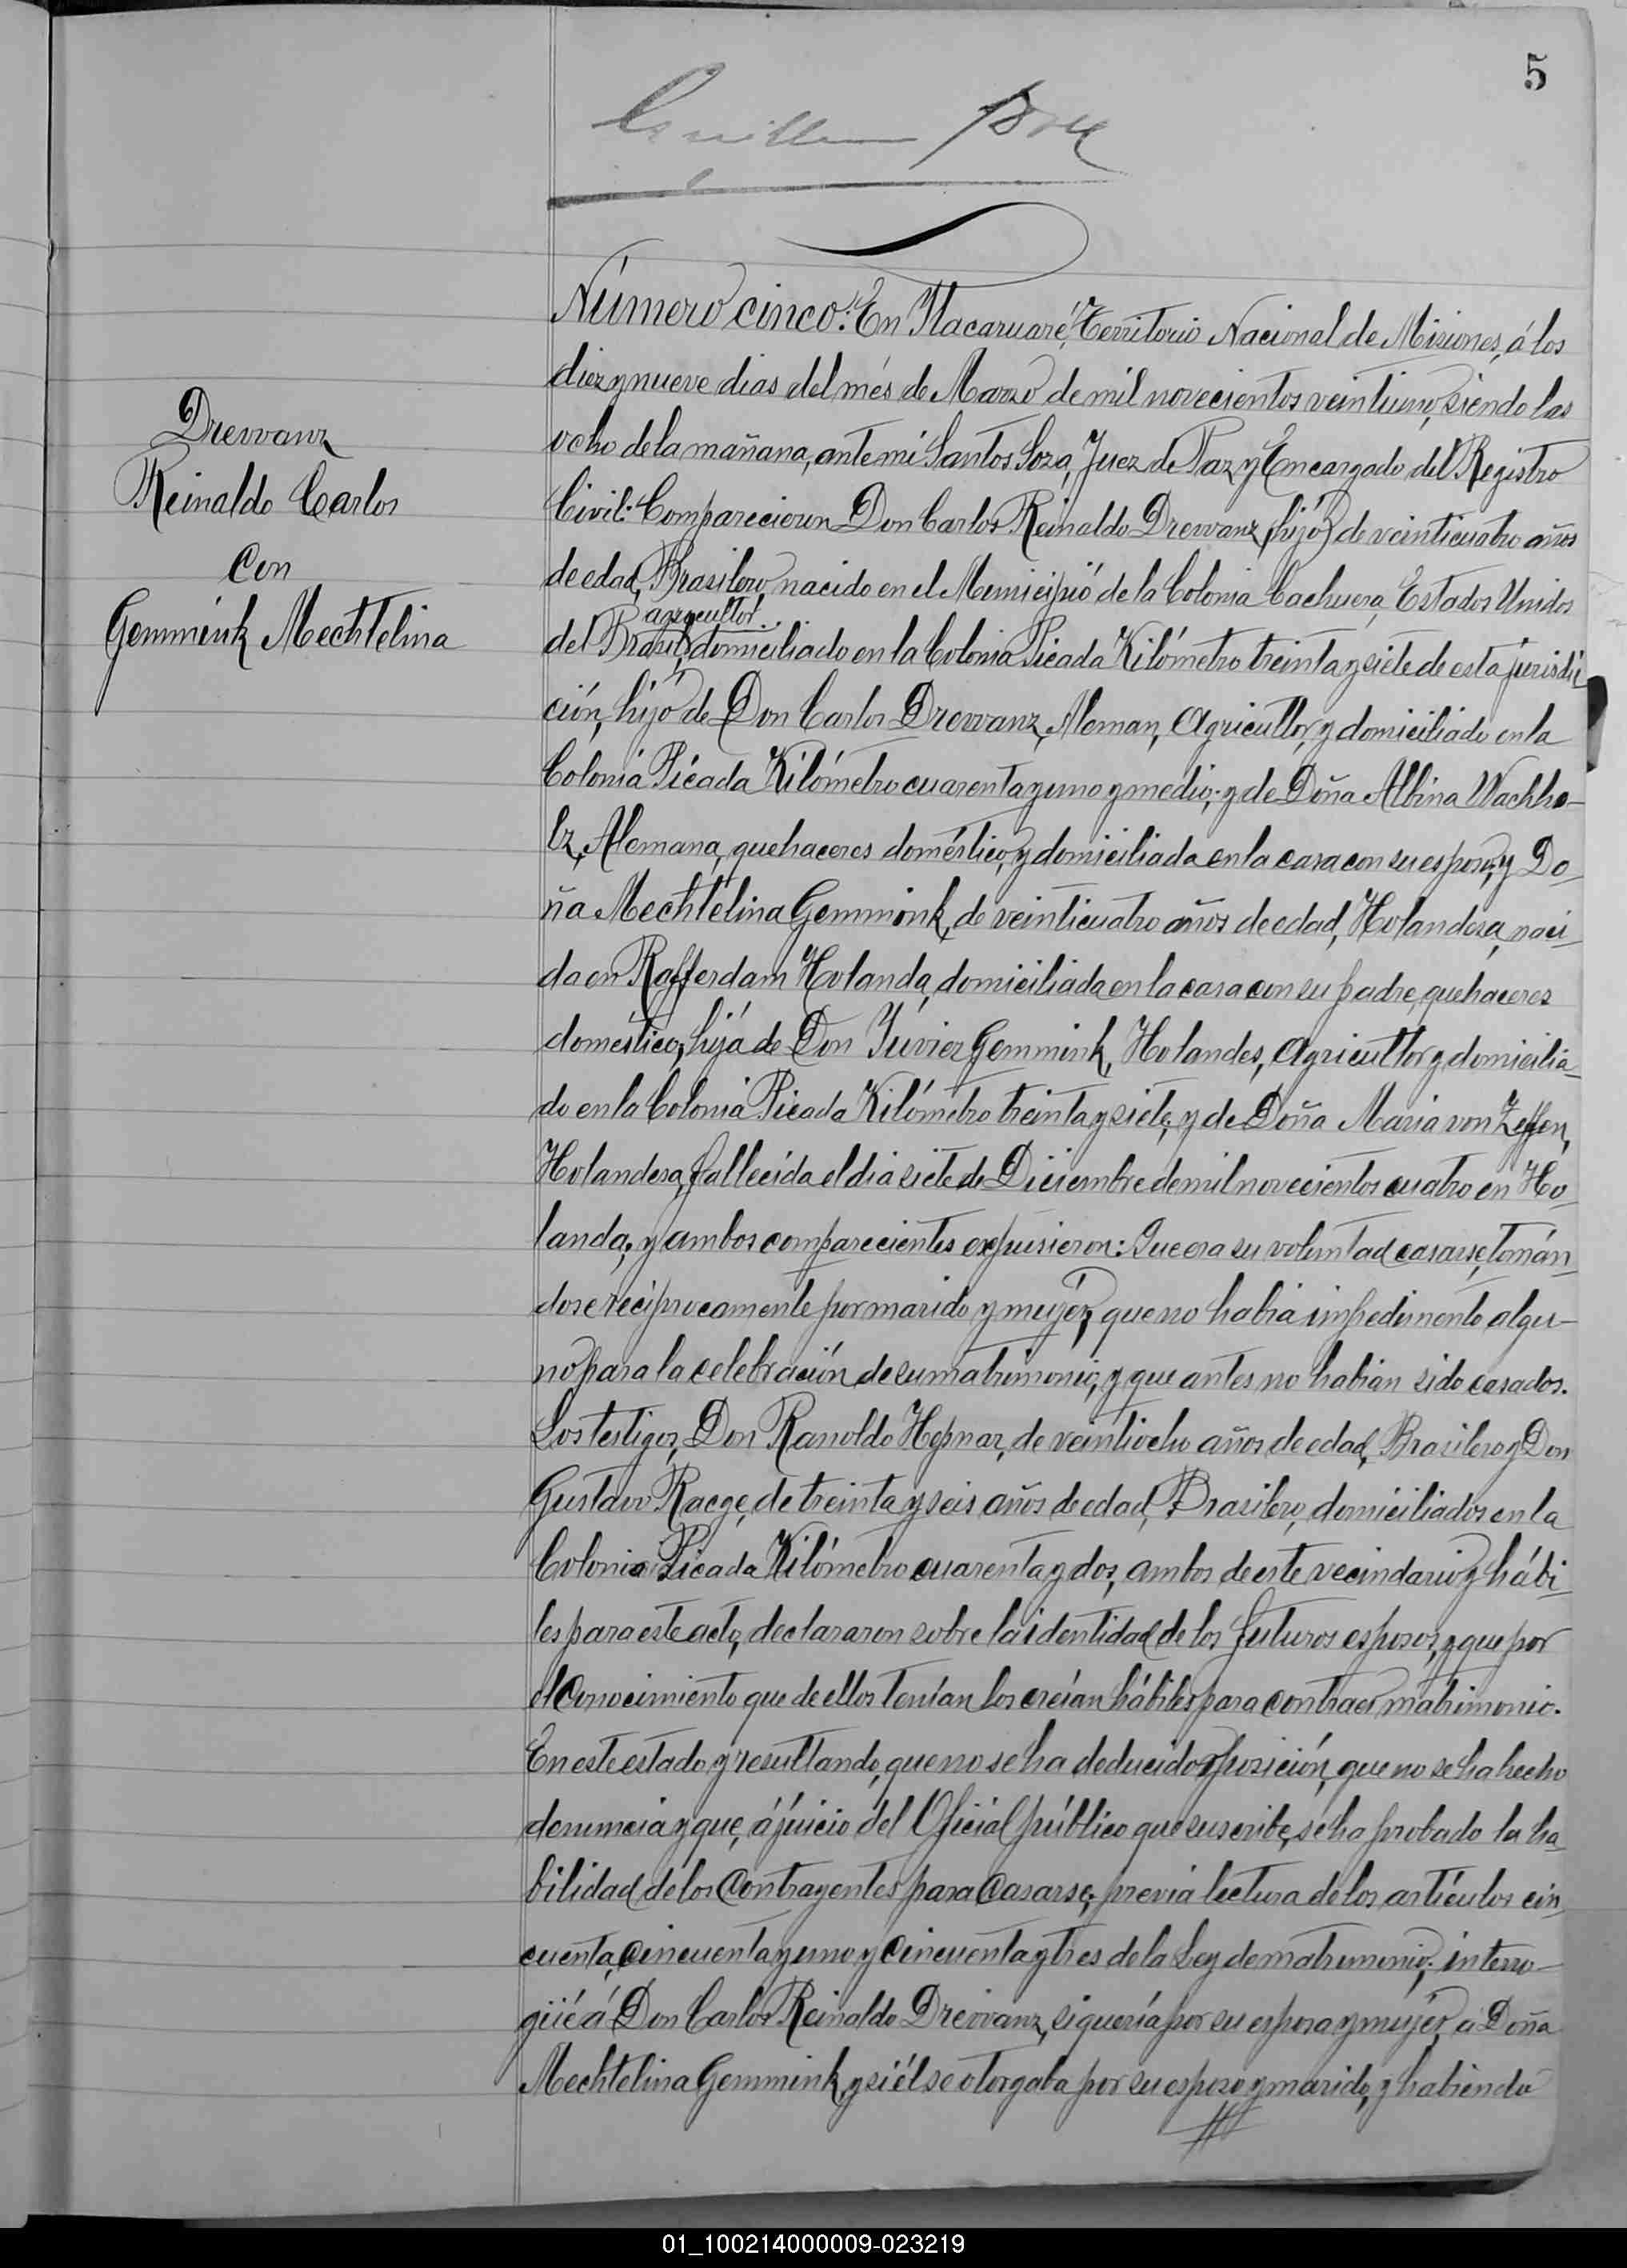 5
Número cinco: En Itacaruaré, Territorio Nacional de Misiones, á los
diez y nueve dias del més de Marzo de mil novecientos veintiuno, siendo las
ocho de la mañana, ante mi Santos Soza, Juez de Paz y Encargado del Registro
Civil: Comparecieron Don Carlos Reinaldo Drewanz, (hijo) de veinticuatro años
de edad, Brasilero, nacido en el Municipió de la Colonia Cachuera, Estados Unidos
agrícultor.
del Brasil, domiciliado en la Colonia Picada Kilómetro treinta y siete de esta jurisdic
ción, hijo de Don Carlos Drewanz, Aleman, Agricultor, y domiciliado en la
Colonia Picada Kilómetro cuarenta y uno y medio; y de Doña Albina Wachho-
lz, Alemana, quehaceres doméstico, y domiciliada en la casa con su esposo; y Do-
ña Mechtelina Gemmink, de veinticuatro años de edad, Holandesa, naci-
da en Rafferdam Holanda, domiciliada en la casa con su padre, quehaceres
doméstico; hija de Don Yúvier Gemmink, Holandes, Agricultor y domicilia-
do en la Colonia Picada Kilómetro treinta y siete; y de Doña Maria von Zeffen,
Holandesa, fallecida el dia siete de Diciembre de mil novecientos cuatro en Ho-
landa; y ambos comparecientes expusieron: Que era su voluntad casarse, tomán-
dose reciprocamente por marido y mujér; que no habia impedimento algu-
no para la celebración de su matrimonio, y que antes no habian sido casados.
Los testigos, Don Ranoldo Hepnar, de veintiocho años de edad, Brasilero y Don
Gustavo Raege, de treinta y seis años de edad, Brasilero, domiciliados en la
Colonia Picada Kilómetro cuarenta y dos, ambos de este vecindario y hábi-
les para este acto, declararon sobre la identidad de los futuros esposos, y que por
el Conocimiento que de ellos tenían los creían hábiles para contraer matrimonio.
En este estado y resultando, que no se ha deducido oposición, que no se ha hecho
denuncia y que, á juicio del Oficial público que suscribe, se ha probado la ha-
bilidad de los Contrayentes para Casarse; previa lectura de los artículos cin-
cuenta, cincuenta y uno y cincuenta y tres de la Ley de matrimonio; interro-
güé á Don Carlos Reinaldo Drewanz, si quería por su esposa y mujér, á Doña
Mechtelina Gemmink, y si él se otorgaba por su esposo y marido, y habiendo
Drewanz
Reinaldo Carlos
Con
Gemmink Mechtelina
01_100214000009-023219